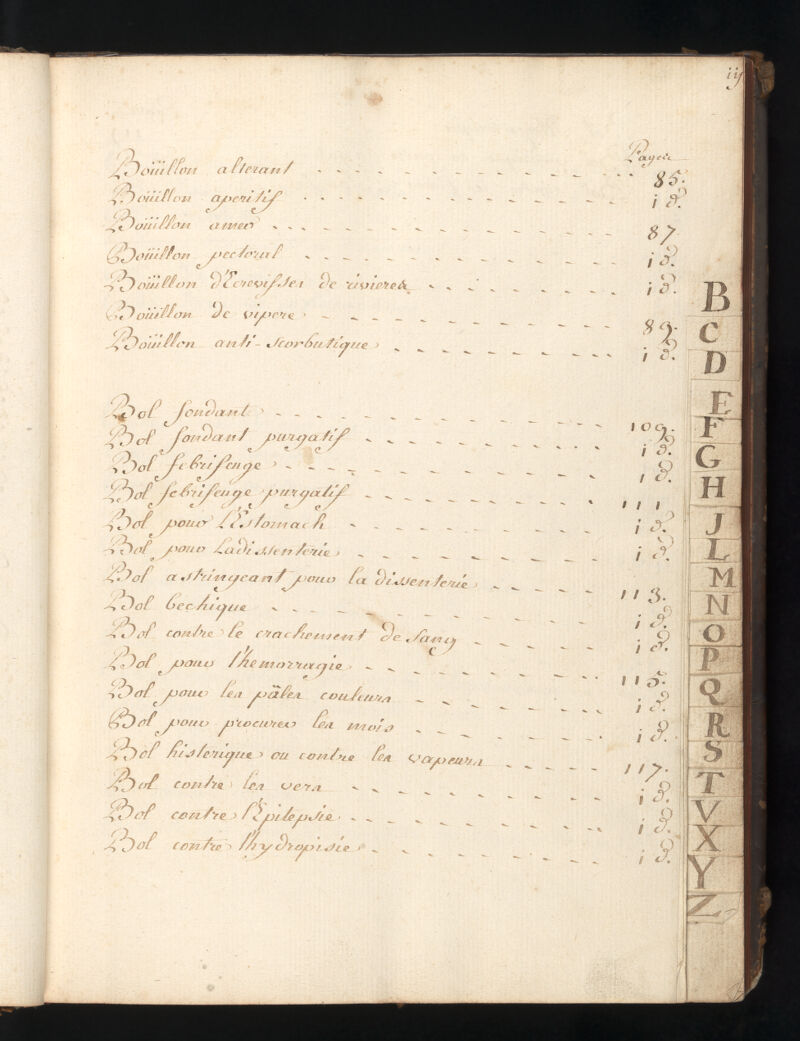 iij
Pages
Boüillon alterant 85.
Boüillon aperitif id.
Boüillon amer 87
Boüillon pectoral id.
Boüillon d'Ecrevisses de rivieres id.
Boüillon de vipere 89.
Boüillon anti-scorbutique id.
Bol fondant 109.
Bol fondant purgatif id.
Bol febrifuge id.
Bol febrifuge purgatif 111
Bol pour l'Estomach id.
Bol pour Ladissenterie id.
Bol astringeant pour la dissenterie 113.
Bol bechique id.
Bol contre le crachement de sang id.
Bol pour l'hemorragie 115.
Bol pour les pâles couleurs id.
Bol pour procurer les mois id.
Bol histerique ou contre les vapeurs 117.
Bol contre les vers id.
Bol contre l'Epilepsie id.
Bol contre l'hydropisie id.
B
C
D
E
F
G
H
J
L
M
N
O
P
Q
R
S
T
V
X
Y
Z